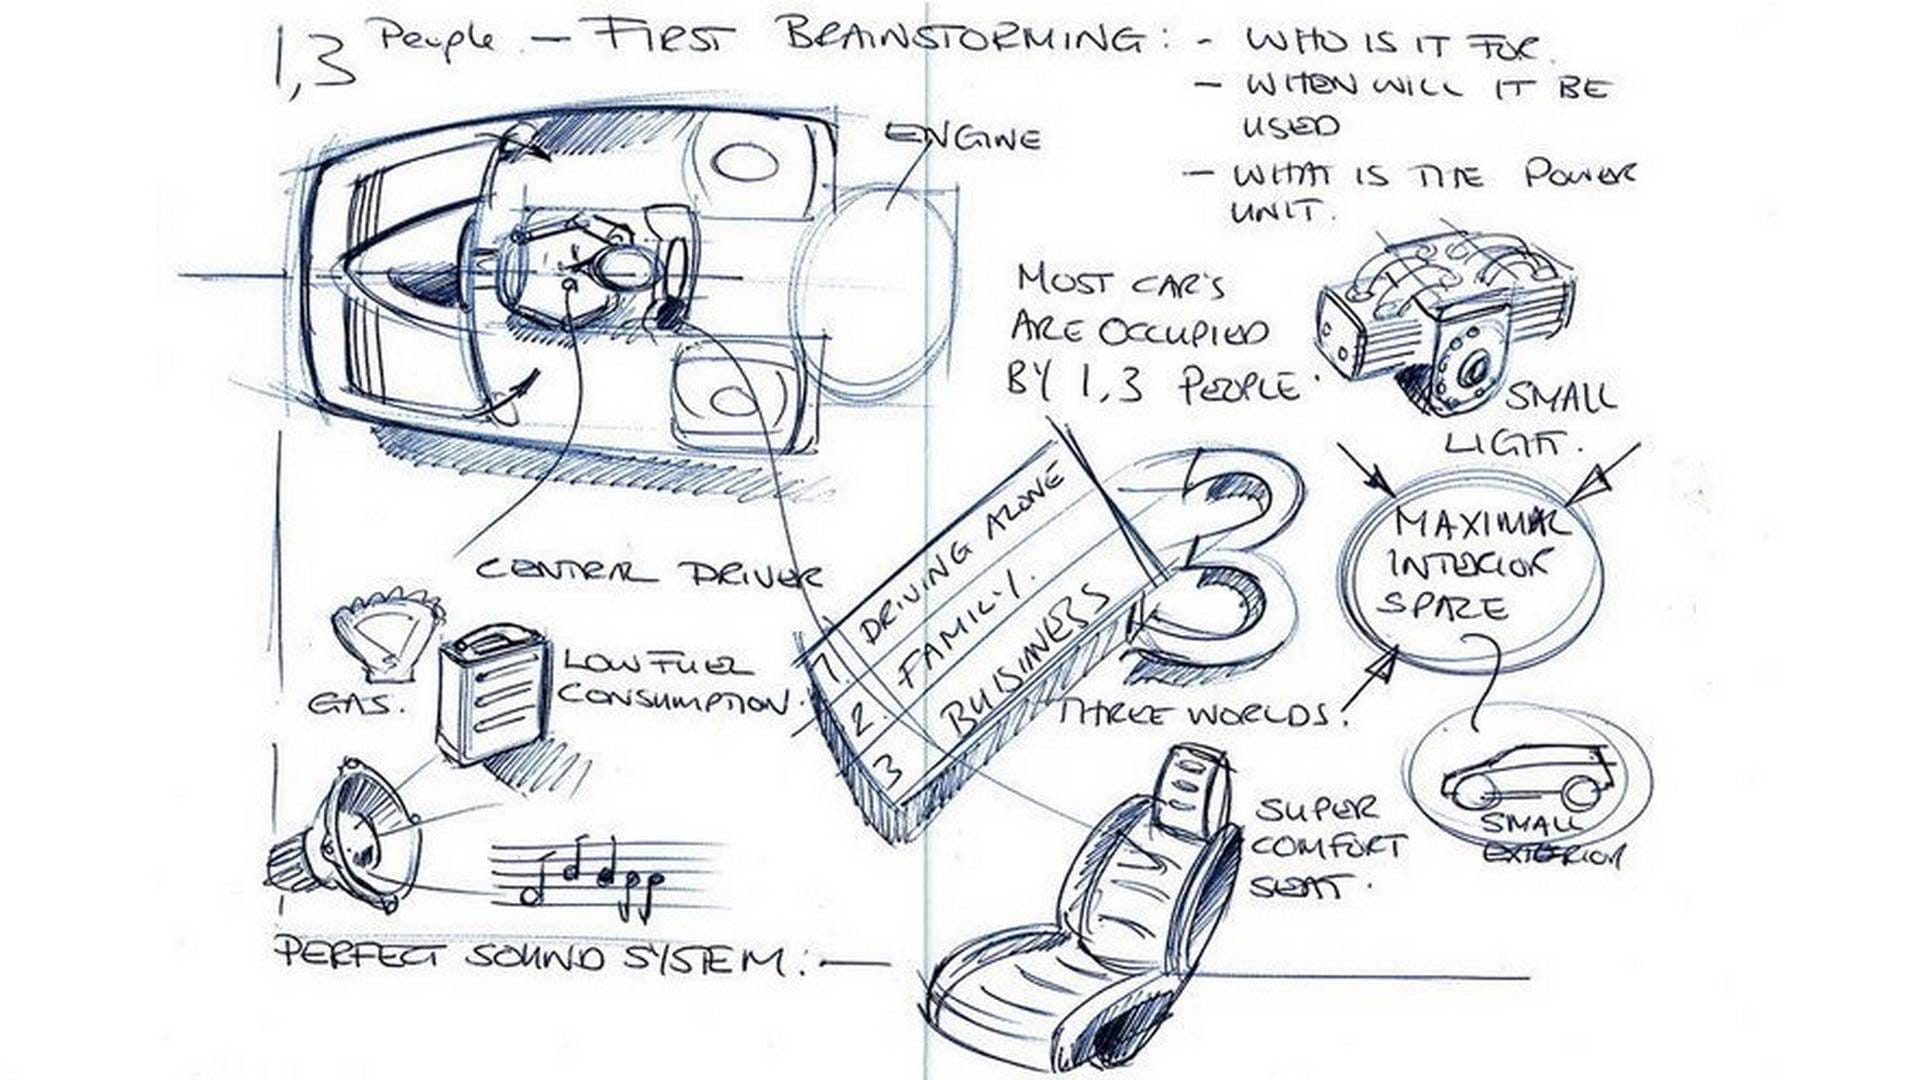 1,3 People - FIRST BRAINSTORMING: - WHO IS IT FOR.
- WHEN WILL IT BE
USED
- WHAT IS THE POWER
UNIT.
ENGINE
MOST CAR'S
ARE OCCUPIED
BY 1,3 PEOPLE.
SMALL
LIGHT.
CENTRAL DRIVER
1. DRIVING ALONE
2. FAMILY.
3 BUISINESS
3
THREE WORLDS.
MAXIMAL
INTERIOR
SPACE
SMALL
EXTERIOR
GAS.
LOW FUEL
CONSUMPTION.
SUPER
COMFORT
SEAT.
PERFECT SOUND SYSTEM.